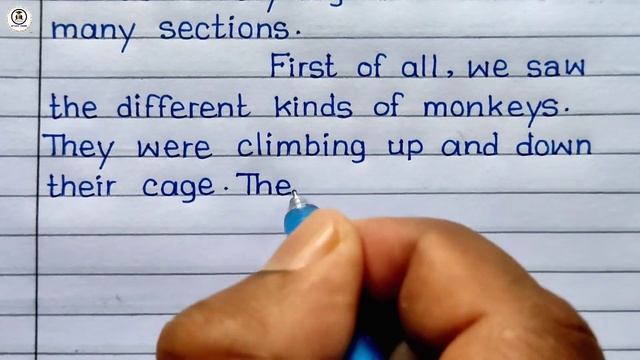 many sections.
First of all, we saw
the different kinds of monkeys.
They were climbing up and down
their cage. The